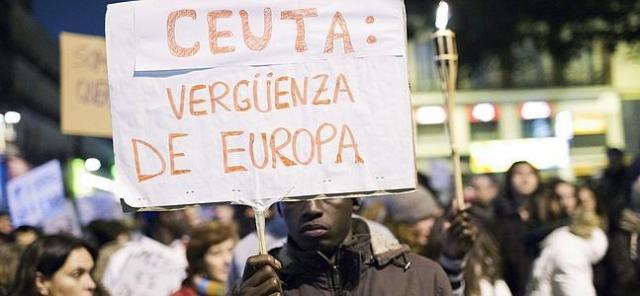 CEUTA:
VERGÜENZA
DE EUROPA